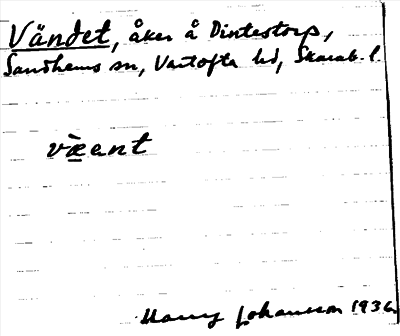 Vändet, åker å Dintestorp,
Sandhems sn, Vartofta hd, Skarab. l.
væ̀ant
Harry Johansson 1936